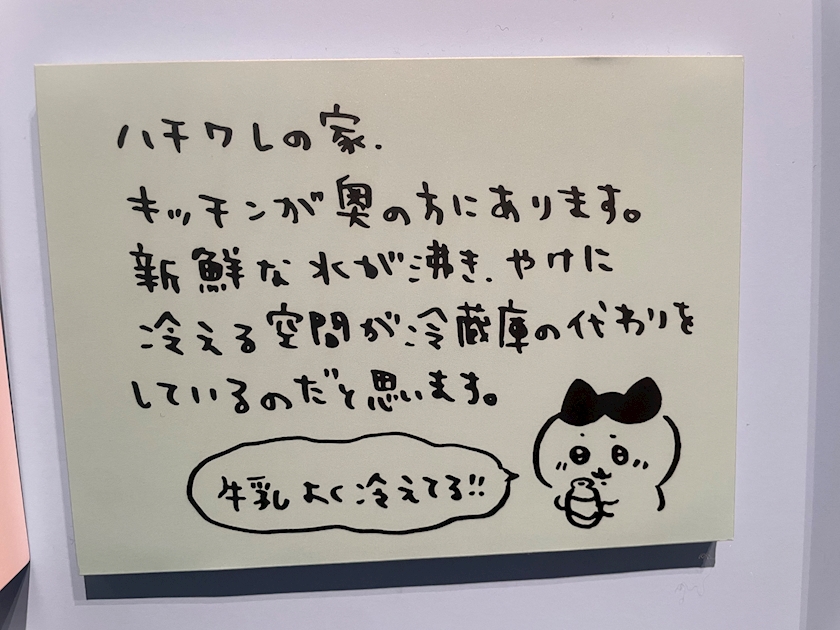 ハチワレの家.
キッチンが奥の方にあります。
新鮮な水が沸き.やけに
冷える空間が冷蔵庫の代わりを
しているのだと思います。
牛乳よく冷えてる!!